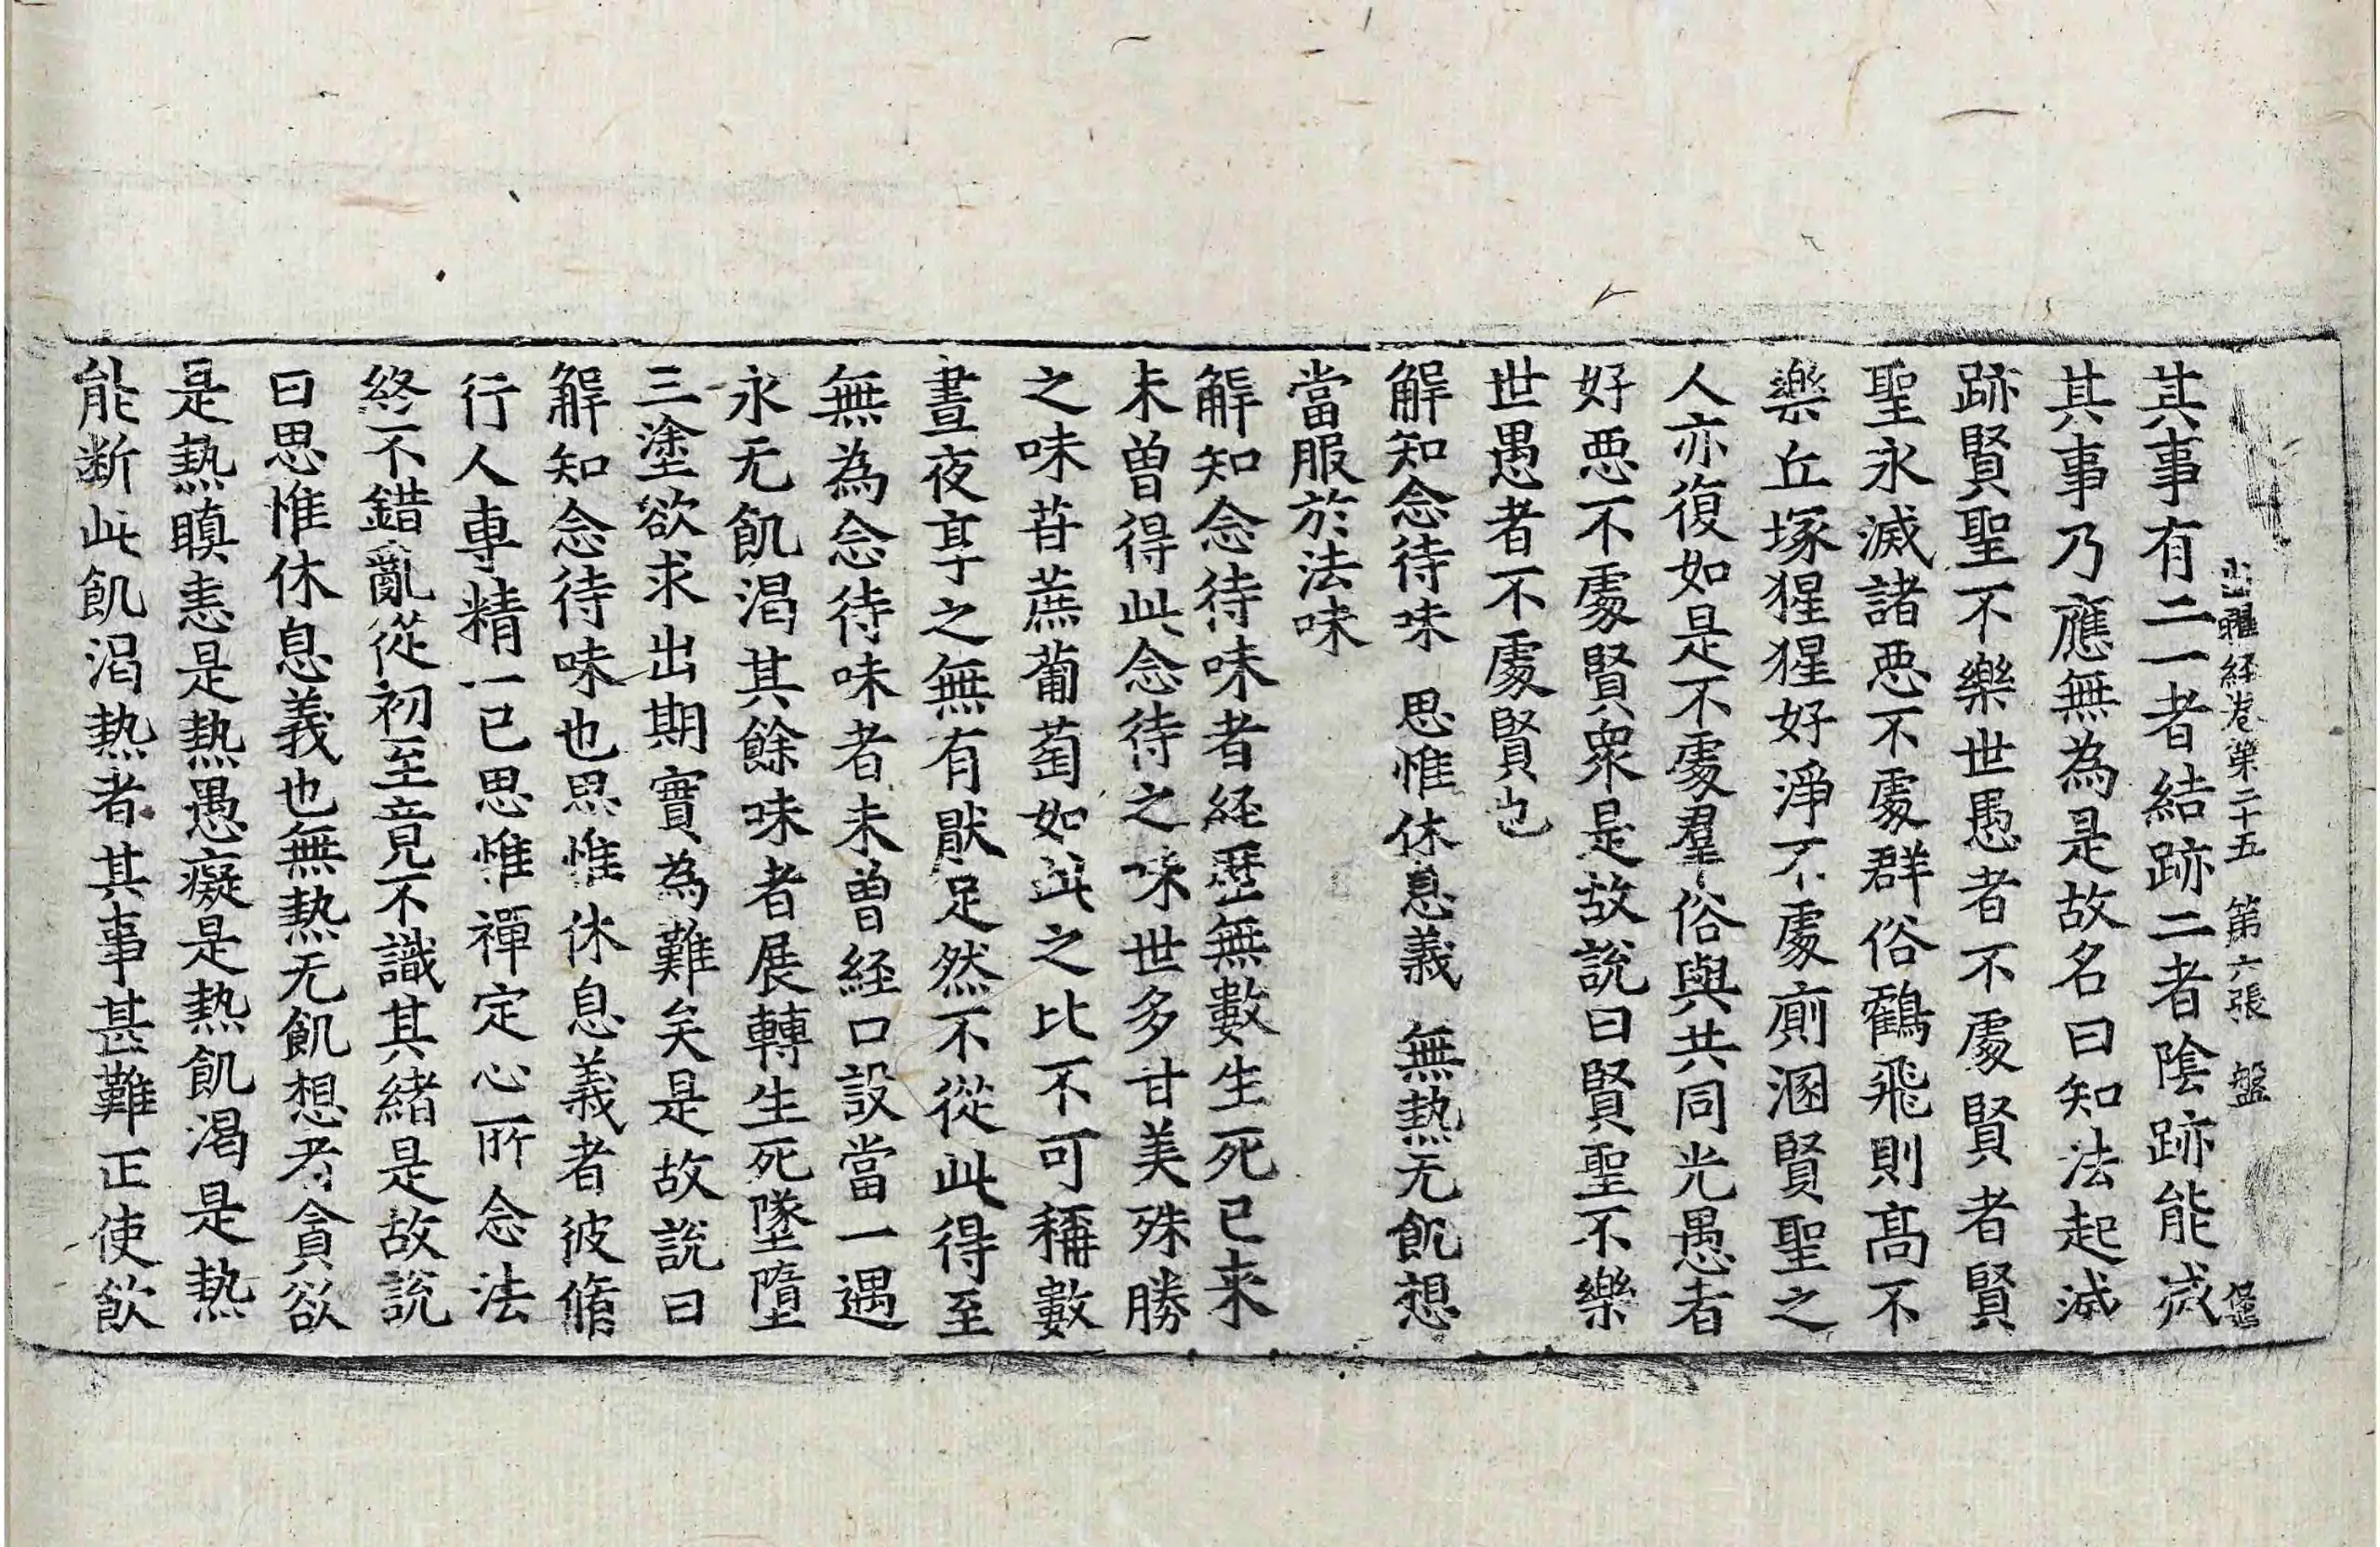 出曜経卷第二十五 第六張 盤
其事有二一者結跡二者陰跡能滅
其事乃應無為是故名曰知法起滅
跡賢聖不樂世愚者不處賢者賢
聖永滅諸悪不處群俗鶴飛則髙不
樂丘塚猩猩好淨不處廁溷賢聖之
人亦復如是不處羣俗與共同光愚者
好悪不處賢眾是故說曰賢聖不樂
世愚者不處賢也
解知念待味 思惟休息義 無熱无飢想
當服於法味
解知念待味者経歷無數生死已来
未曾得此念待之味世多甘美殊勝
之味苷蔗葡萄如此之比不可稱數
晝夜享之無有猒足然不從此得至
無為念待味者未曾経口設當一遇
永无飢渴其餘味者展轉生死墜墮
三塗欲求出期實為難矣是故說曰
解知念待味也思惟休息義者彼脩
行人專精一已思惟禪定心所念法
終不錯亂從初至竟不識其緒是故說
曰思惟休息義也無熱无飢想者貪欲
是熱瞋恚是熱愚癡是熱飢渴是熱
能断此飢渴熱者其事甚難正使飲